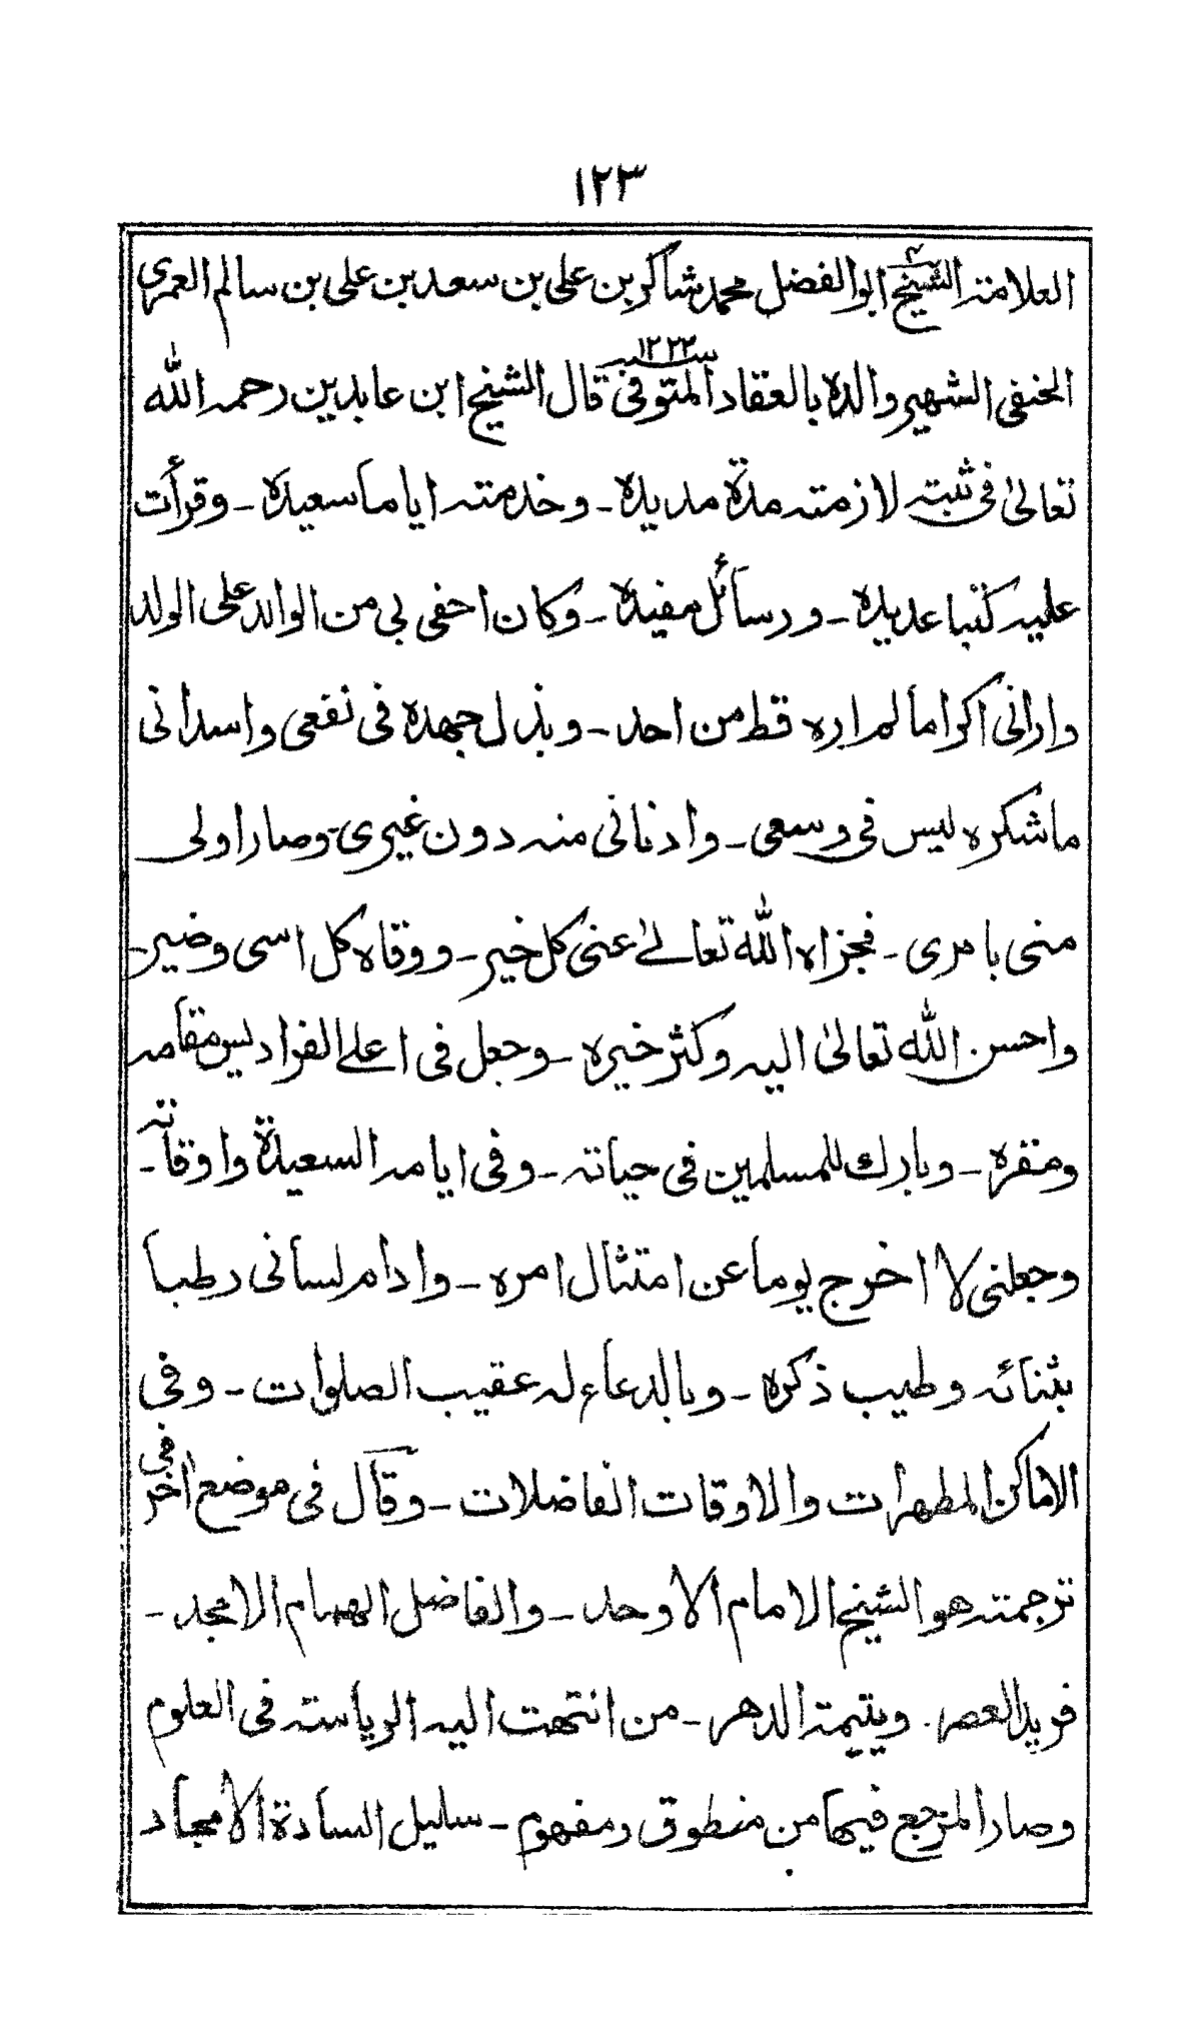 ١٢٣
العلامة الشيخ ابو الفضل محمد شاكر بن علي بن سعد بن علي بن سالم العمري
الحنفي الشهير والده بالعقاد المتوفى سنة ١٢٢٢ قال الشيخ ابن عابدين رحمه الله
تعالىٰ في ثبته لازمته مدة مديدة - وخدمته اياما سعيدة - وقرأت
عليه كتبا عديدة - ورسائل مفيدة - وكان احفى بي من الوالد على الولد
وارانى اكراماً لم اره قط من احد - وبذل جهده في نفعى واسدانى
ما شكره ليس في وسعى - وادنانى منه دون غيرى - وصار اولى
منى بامرى - فجزاه الله تعالىٰ عنى كل خير - ووقاه كل اسى وضير -
واحسن الله تعالىٰ اليه وكثر خيره - وجعل في اعلى الفراديس مقامه
ومقره - وبارك للمسلمين في حياته - وفي ايامه السعيدة واوقاته -
وجعلنى لا اخرج يوماً عن امتثال امره - وادام لسانى رطباً
بثنائه وطيب ذكره - وبالدعاء له عقيب الصلوات - وفي
الاماكن المطهرات والاوقات الفاضلات - وقال في موضع اخر في
ترجمته هو الشيخ الامام الاوحد - والفاضل الهمام الامجد -
فريد العصر - ويتيمة الدهر - من انتهت اليه الرياسة في العلوم
وصار المرجع فيها من منطوق ومفهوم - سليل السادة الامجاد